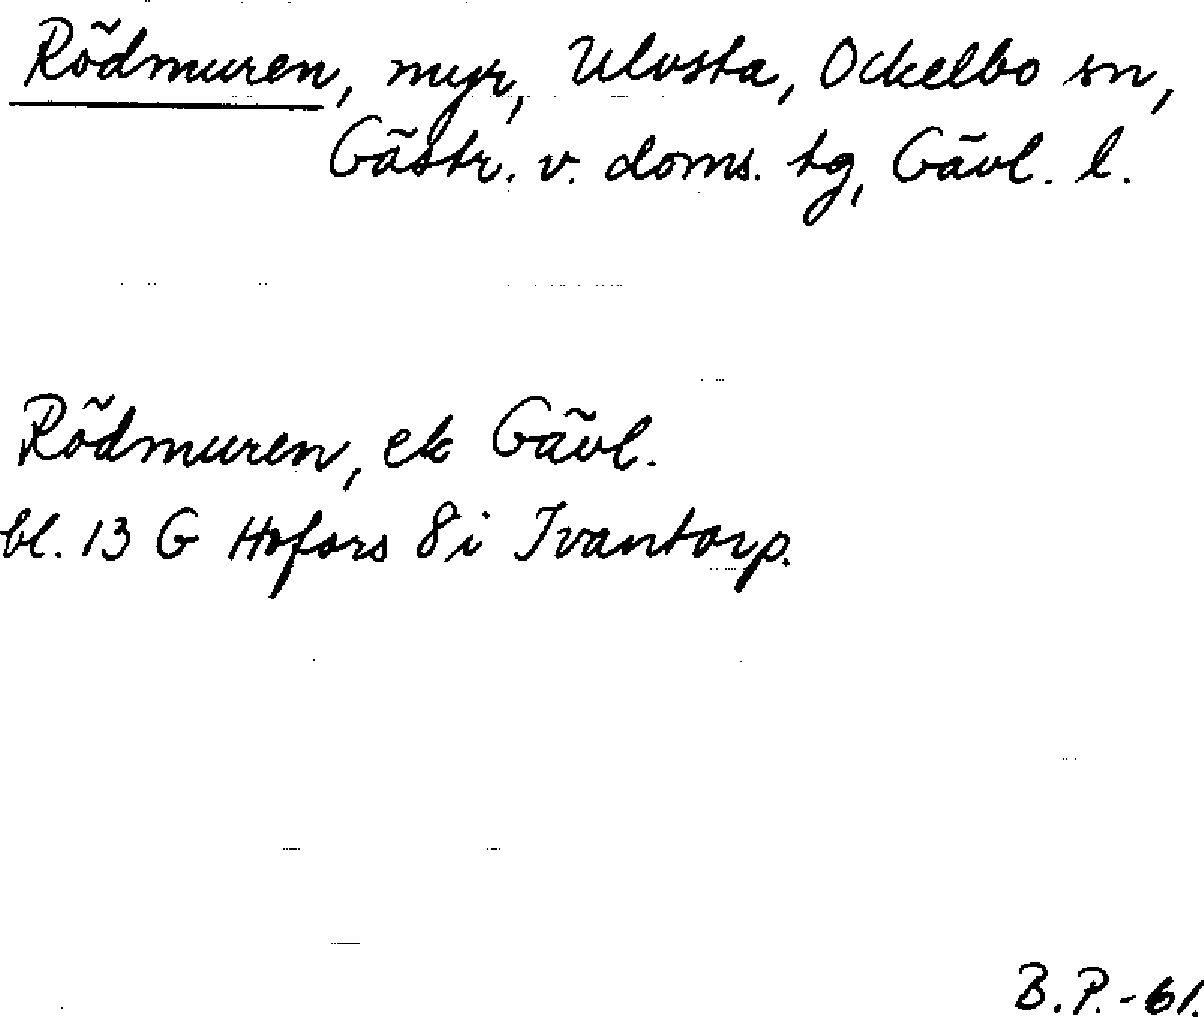 Rödmuren, myr, Ulvsta, Ockelbo sn,
Gästr. v. doms. tg, Gävl. l.
Rödmuren, ek Gävl.
bl. 13 G Hofors 8i Ivantorp.
B.P.-61.